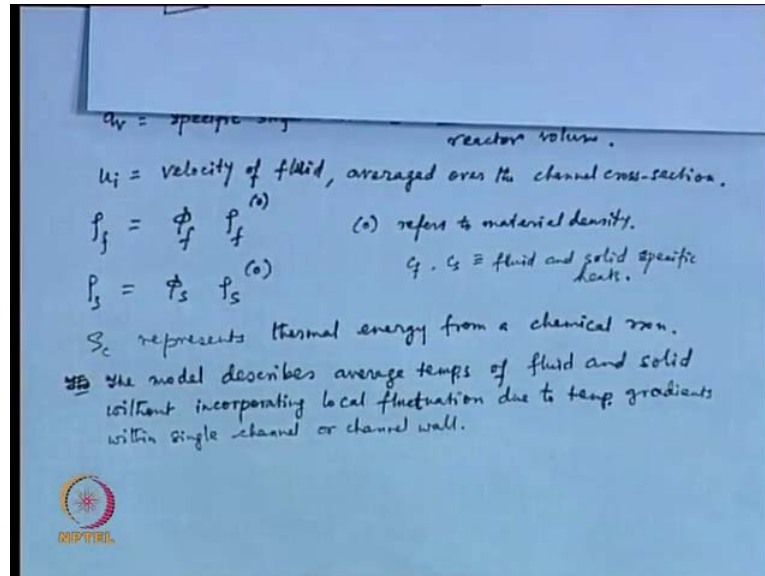 = specific
reactor volume.
u_i = velocity of fluid, averaged over the channel cross-section.
ρ_f = φ_f ρ_f^(0) (0) refers to material density.
c_f, c_s ≡ fluid and solid specific heats.
ρ_s = φ_s ρ_s^(0)
S_c represents thermal energy from a chemical rxn.
The model describes average temps of fluid and solid
without incorporating local fluctuation due to temp. gradients
within single channel or channel wall.
NPTEL